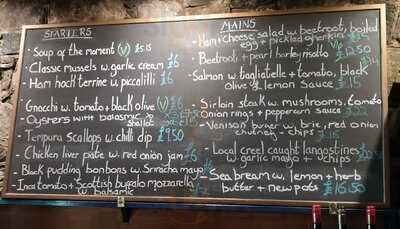 STARTERS
- Soup of the moment (V) £5.15
- Classic mussels w. garlic cream £6
- Ham hock terrine w. piccalilli £6
- Gnocchi w. tomato + black olive (V) £6
- Oysters with balsamic +
shallot
- Tempura scallops w. chilli dip £9.50
- Chicken liver pate w. red onion jam £6
- Black pudding bonbons w. Sriracha mayo
- Inca tomato + Scottish buffalo mozzarella
w. balsamic
MAINS
- Ham + Cheese salad w. beetroot, boiled
egg + pickled gherkins £15
- Beetroot + pearl barley risotto £12.50
- Salmon w. tagliatelle + tomato, black £14
olive + lemon sauce £15
- Sirloin steak w. mushrooms, tomato
onion rings + peppercorn sauce £22
- Venison burger w. brie, red onion
chutney + chips £15
- Local creel caught langoustines
w. garlic mayo + chips
- Sea bream w. lemon + herb
butter + new pots £16.50